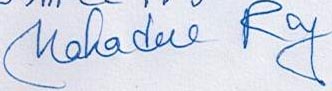 Mahadere Ray